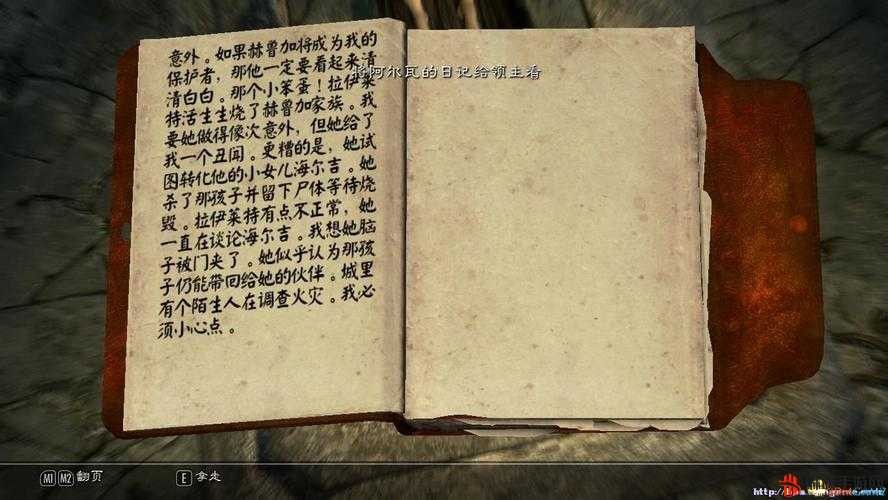 意外。如果赫鲁加将成为我的
保护者，那他一定要看起来清
清白白。那个小笨蛋！拉伊莱
特活生生烧了赫鲁加家族。我
要她做得像次意外，但她给了
我一个丑闻。更糟的是，她试
图转化他的小女儿海尔吉。她
杀了那孩子并留下尸体等待烧
毁。拉伊莱特有点不正常，她
一直在谈论海尔吉。我想她脑
子被门夹了。她似乎认为那孩
子仍能带回给她的伙伴。城里
有个陌生人在调查火灾。我必
须小心点。
将阿尔瓦的日记给领主看
M1 M2 翻页
E 拿走